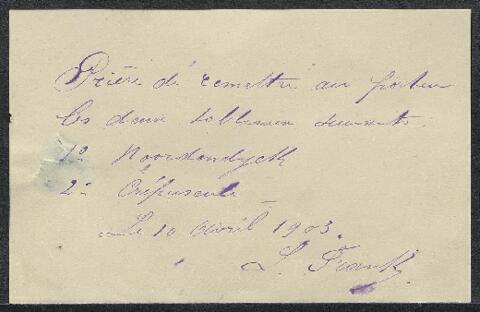 Prière de remettre au porteur
les deux tableaux suivants
1º Noordendyck
2º Crépuscule
Le 10 Avril 1903.
L. Frank